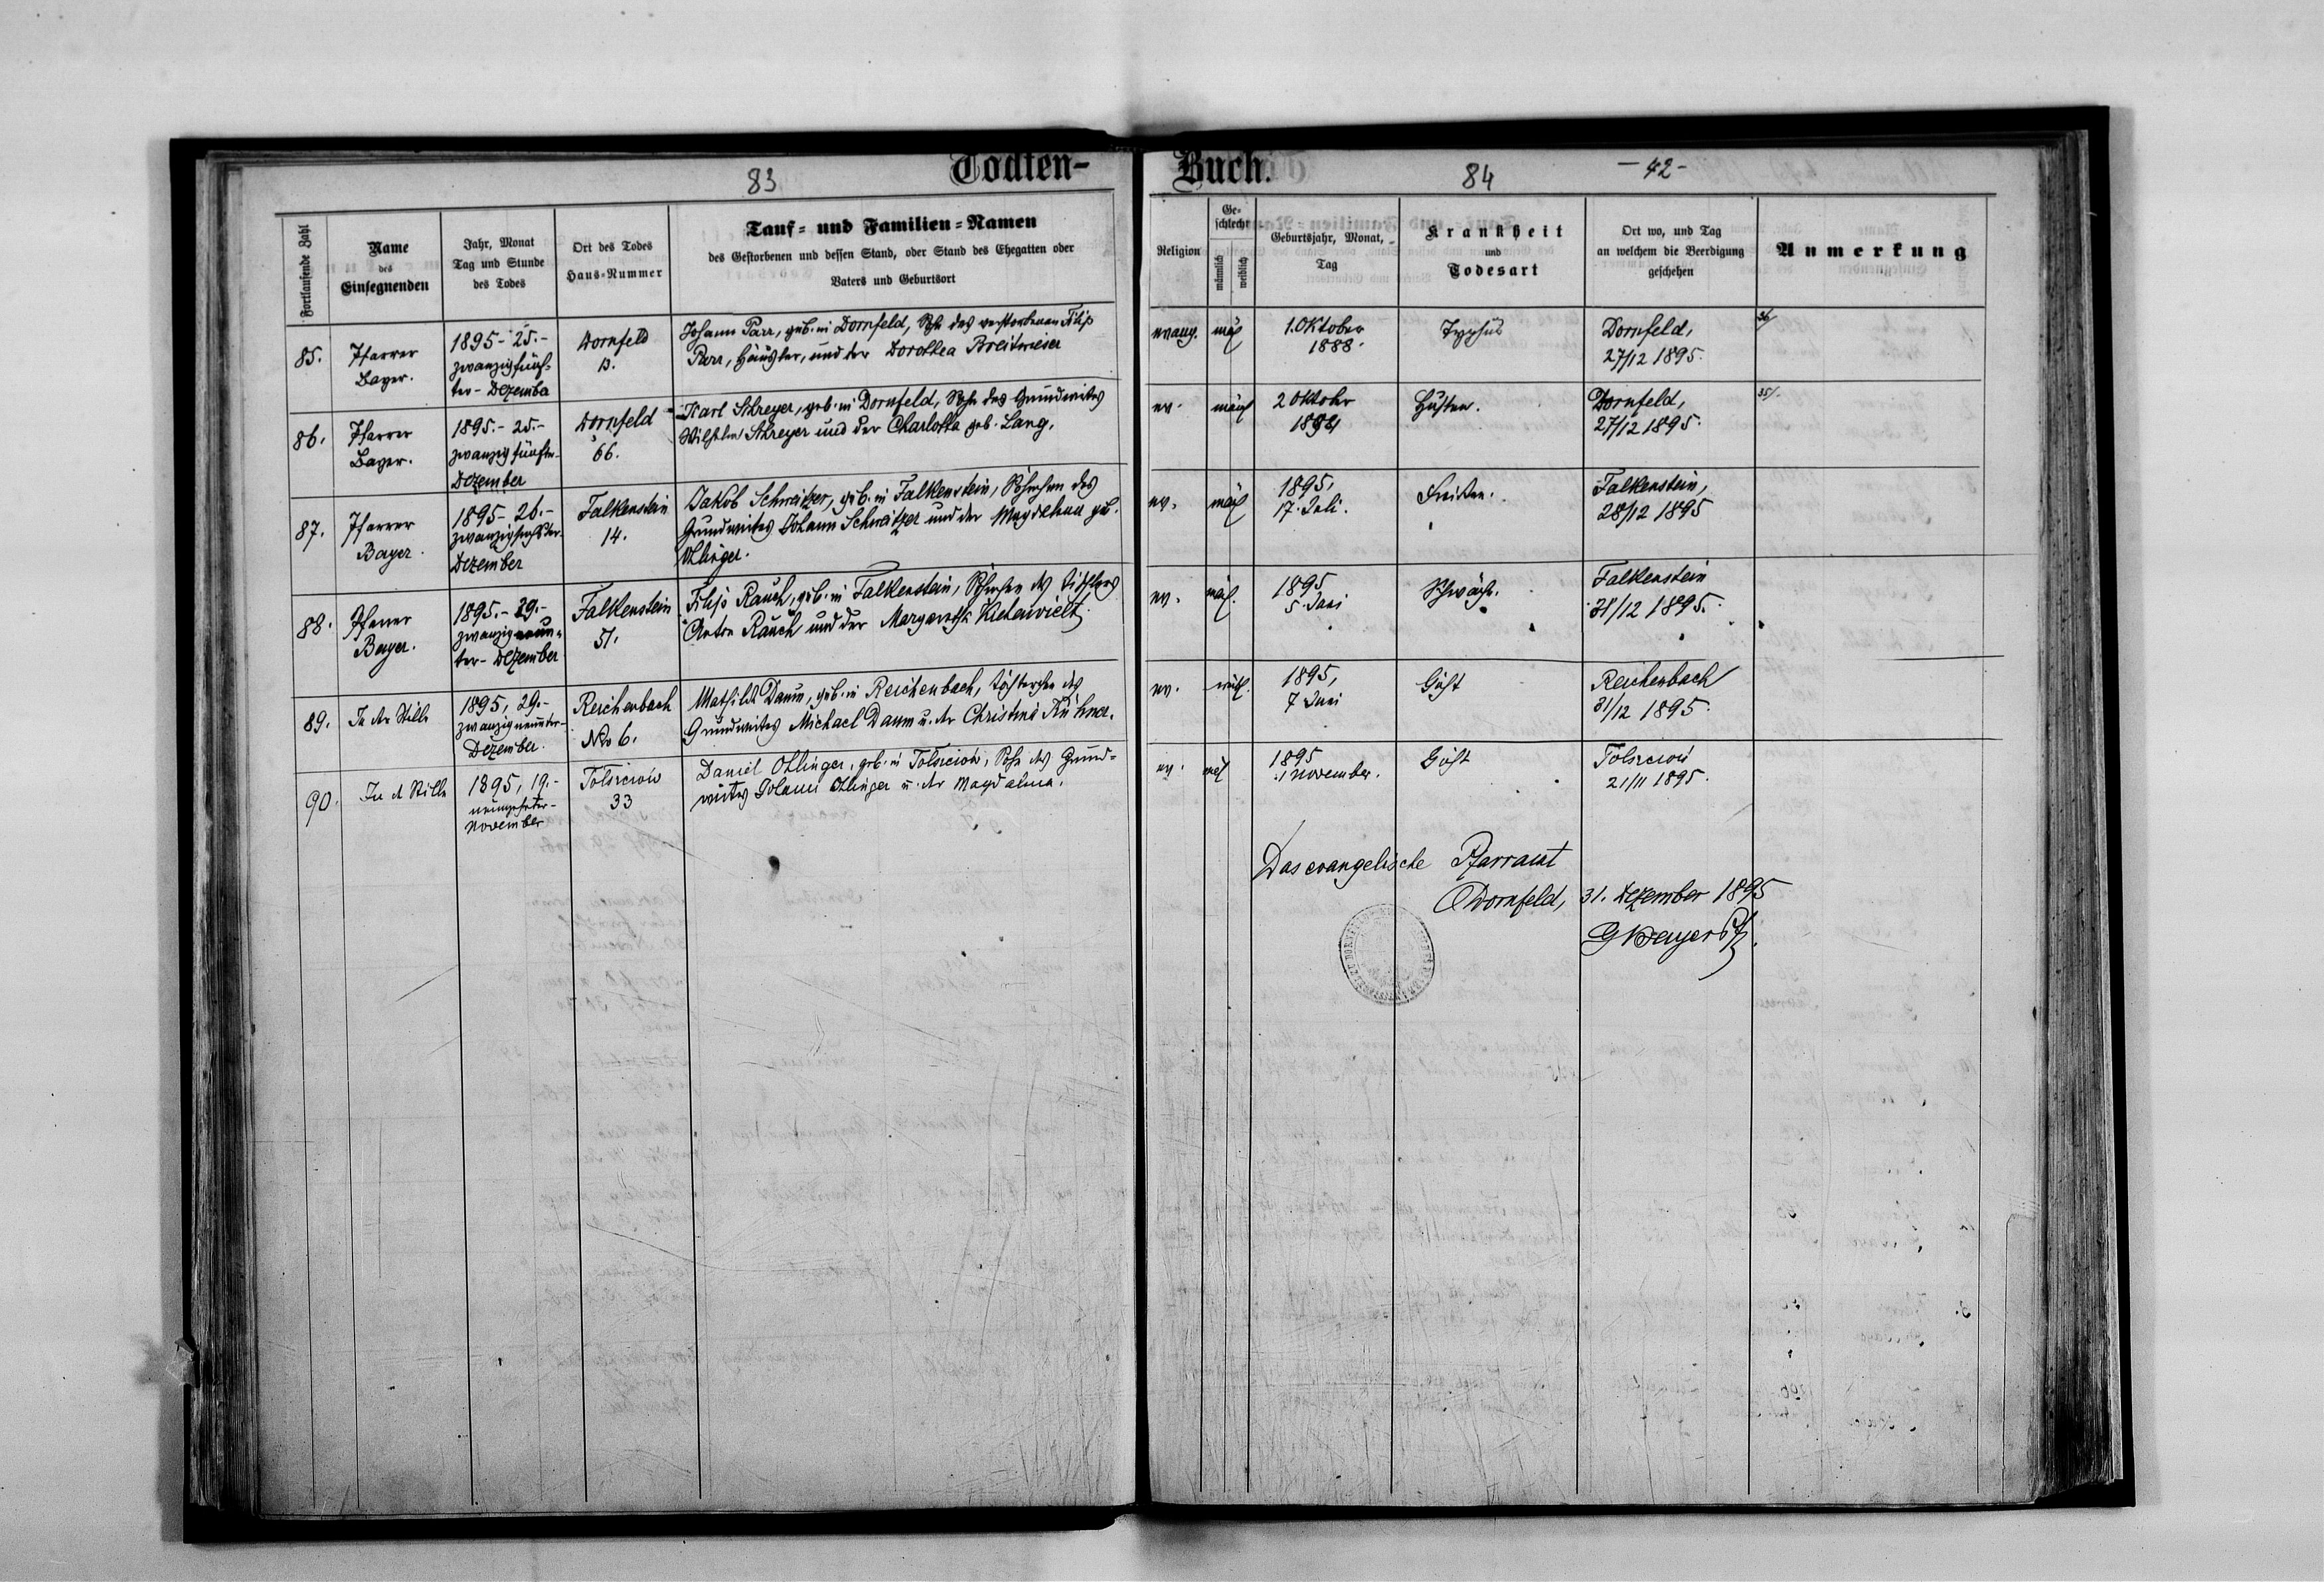 83
Todten-
Buch.
84
- 42 -
Fortlaufende Zahl
Name
des
Einsegnenden
Jahr, Monat
Tag und Stunde
des Todes
Ort des Todes
Haus-Nummer
Tauf- und Familien-Namen
des Gestorbenen und dessen Stand, oder Stand des Ehegatten oder
Vaters und Geburtsort
Religion
Ge-
schlecht
männlich
weiblich
Geburtsjahr, Monat,
Tag
Krankheit
und
Todesart
Ort wo, und Tag
an welchem die Beerdigung
geschehen
Anmerkung
85.
Pfarrer
Bayer.
1895 - 25. -
zwanzigfünf-
ter - Dezember
Dornfeld
13.
Johann Parr, geb. in Dornfeld, Sohn des verstorbenen Filip
Parr, Häusler, und der Dorothea Breitwieser
evang.
mäl
1. Oktober
1888.
Typhus
Dornfeld,
27/12 1895.
36/
86.
Pfarrer
Bayer.
1895. - 25. -
zwanzigfünfter-
Dezember
Dornfeld
66.
Karl Schreyer, geb. in Dornfeld, Sohn des Grundwirtes
Wilhelm Schreyer und der Charlotta geb. Lang.
ev.
mänl
2 Oktober
Husten.
Dornfeld,
27/12 1895.
35/.
87.
Pfarrer
Bayer.
1895 - 26. -
zwanzigsechster-
Dezember
Falkenstein
14.
Jakob Schweitzer, geb. in Falkenstein, Söhnchen des
Grundwirtes Johann Schweitzer und der Magdalena geb.
Ollinger.
ev.
mäl
1895,
17. Juli.
Freisen.
Falkenstein,
28/12 1895
88.
Pfarrer
Bayer.
1895. - 29. -
zwanzigneun-
ter - Dezember
Falkenstein
51.
Filip Rauch, geb. in Falkenstein, Söhnchen des Tischlers
Anton Rauch und der Margaretha
ev.
mäl.
1895
5. Juni
Schwäche.
Falkenstein
31/12 1895.
89.
In der Stille
1895, 29. -
zwanzigneunter-
Dezember.
Reichenbach
Nro 6.
Mathilde Daum, geb. in Reichenbach, Töchterchen des
Grundwirtes Michael Daum u. der Christina Kühner.
ev.
weibl.
1895,
7 Juni
Gicht
Reichenbach
31/12 1895.
90.
In d Stille
1895, 19. -
neunzehnter-
November
Tolszczow
33
Daniel Ollinger, geb. in Tolszczow, Sohn des Grund-
wirtes Johann Ollinger u. der Magdalena.
ev.
mäl
1895
1 November.
Gicht
Tolszczow
21/11 1895.
Das evangelische Pfarramt
Dornfeld, 31. Dezember 1895
G Bayer Pf.